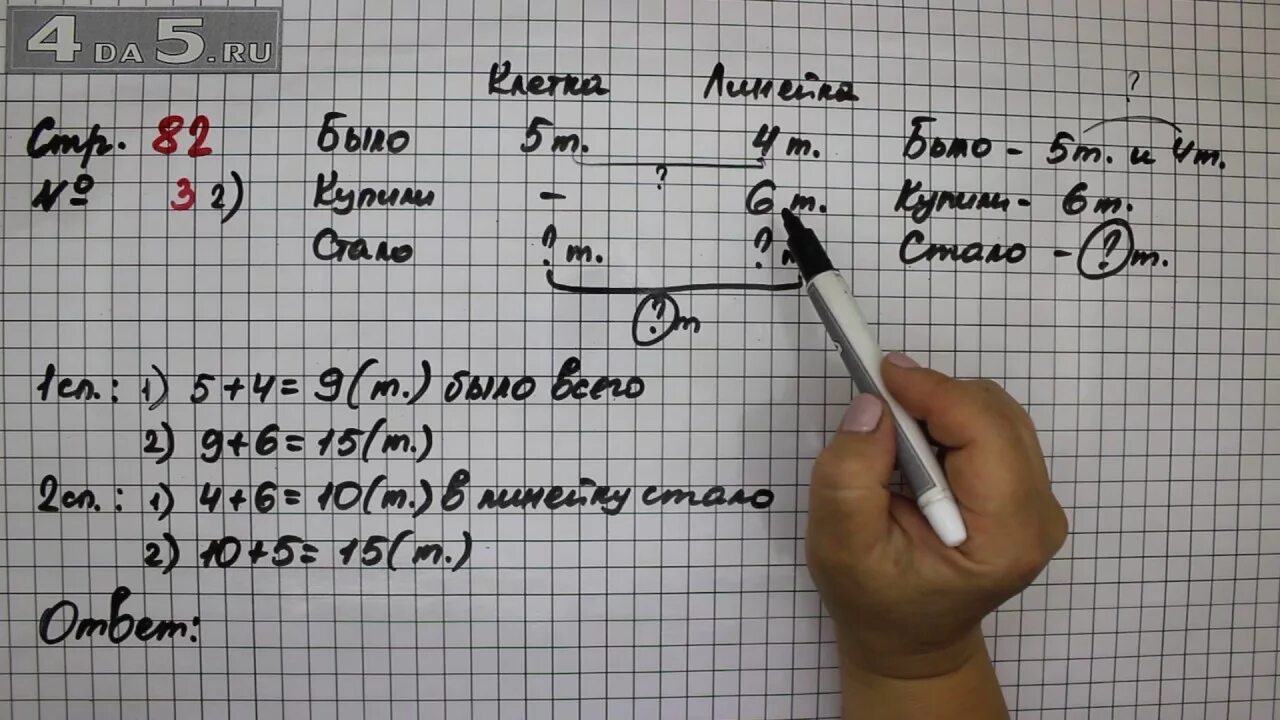 4DA5.RU
Клетка Линейка ?
Стр. 82 Было 5т. 4т. Было - 5т. и 4т.
?
№ 3 2) Купили - 6т. Купили - 6т.
Стало ?т. ? Стало - ?т.
?т
1сп.: 1) 5+4=9(т.) было всего
2) 9+6=15(т.)
2сп.: 1) 4+6=10(т.) в линейку стало
2) 10+5=15(т.)
Ответ: